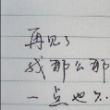 再见了
我那么那
一点也不